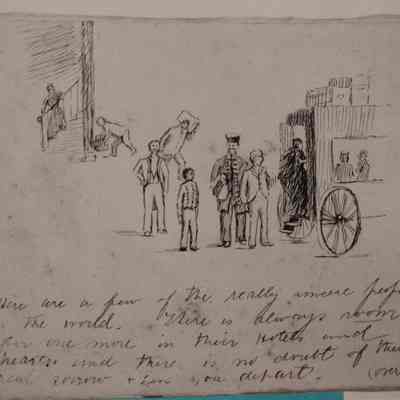 Here are a few of the really sincere peop
in the world. There is always room
for one more in their Hotels and
hearts and there is no doubt of their
real sorrow when you depart. (over